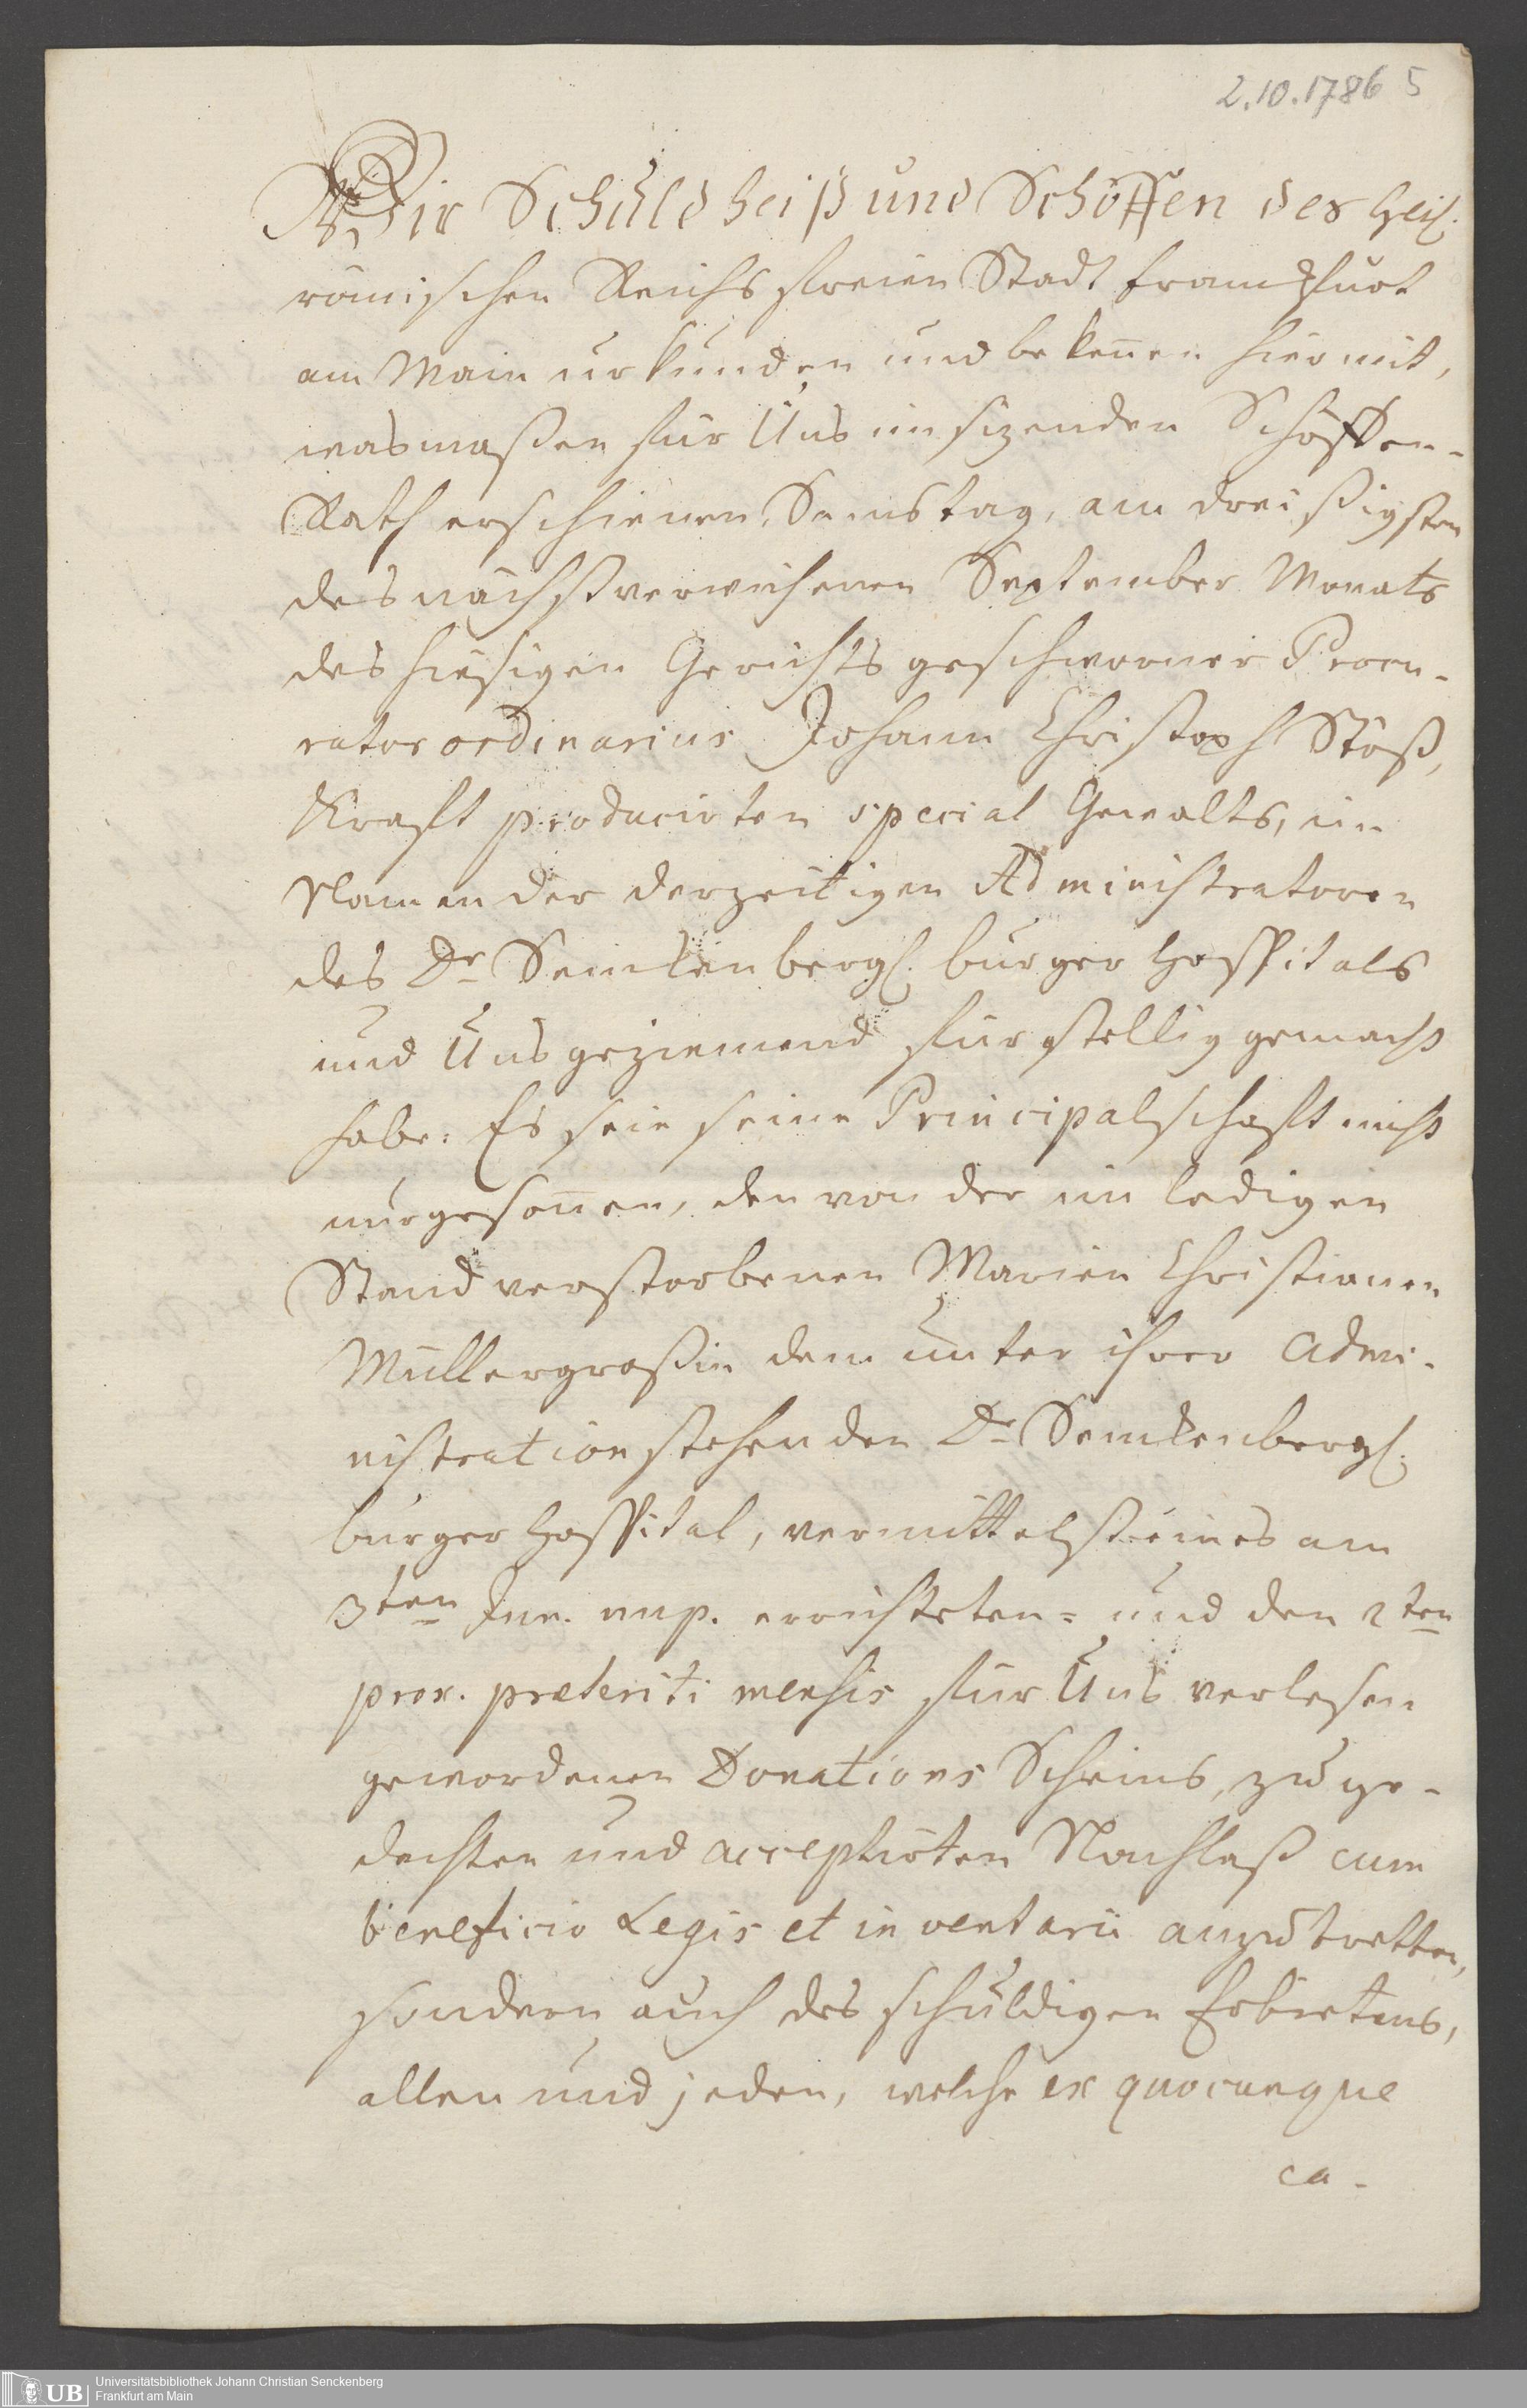 2.10.1786 5
Wir Schuldheiß und Schöffen des Heil.
römischen Reichs freien Stadt Franckfurt
am Main urkunden und bekennen hiermit,
wasmaßen für Uns im sizenden Schöffen-
Rath erschienen, Samstag, am dreißigsten
des nächstverwichenen September Monats
des hiesigen Gerichts geschworner Procu-
rator ordinarius Johann Christoph Stöß,
Kraft producirten special Gewalts, im
Namen der derzeitigen Administratoren
des Dr Senckenbergl. burger Hospitals
und Uns geziemend fürstellig gemacht
habe: Es seie seine Principalschaft nicht
nur gesonnen, den von der im ledigen
Stand verstorbenen Marien Christianen
Müllergroßin dem unter ihrer Admi-
nistration stehenden Dr Senckenbergl.
burger Hospital, vermittelst eines am
3ten Jun. nup. errichteten= und den 2ten
prox. præteriti mensis für Uns verlesen
gewordenen Donations Scheins, zu ge-
dachten und acceptirten Nachlaß cum
beneficio Legis et inventarii anzutretten,
sondern auch des schuldigen Erbietens,
allen und jeden, welche ex quocunque
ca-
UB
Universitätsbibliothek Johann Christian Senckenberg
Frankfurt am Main